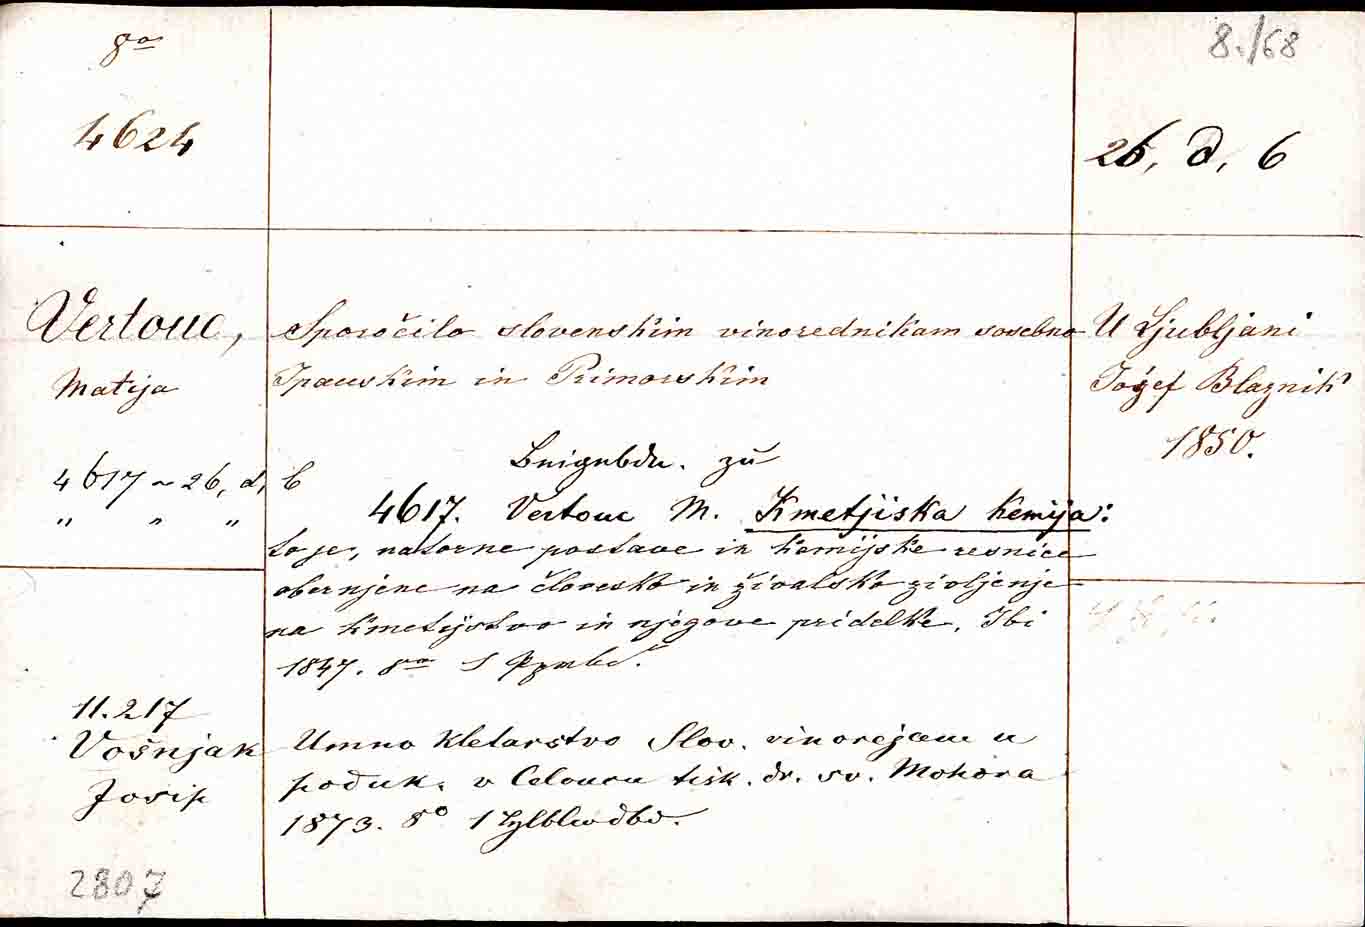 8vo
8./68
4624
26, d, 6
Vertouc,
Matija
Sporočilo slovenskim vinorednikam sosebno
Ipauskim in Primorskim
U Ljubljani
Jožef Blaznik
1850.
4617 ~ 26, d, 6
" " "
Beigebdn. zu
4617. Vertouc M. Kmetjiska kemija:
to je, natorne postave in kemijske resnice
obernjene na človesko in živalsko zivljenje
na kmetijstvo in njegove pridelke. Ibi
1847. 8vo 1
11.217
Vošnjak
Josip
Umno kletarstvo Slov. vinorejcem u
poduk. v Celovcu tisk. dr. sv. Mohora
1873. 8° 1
2807